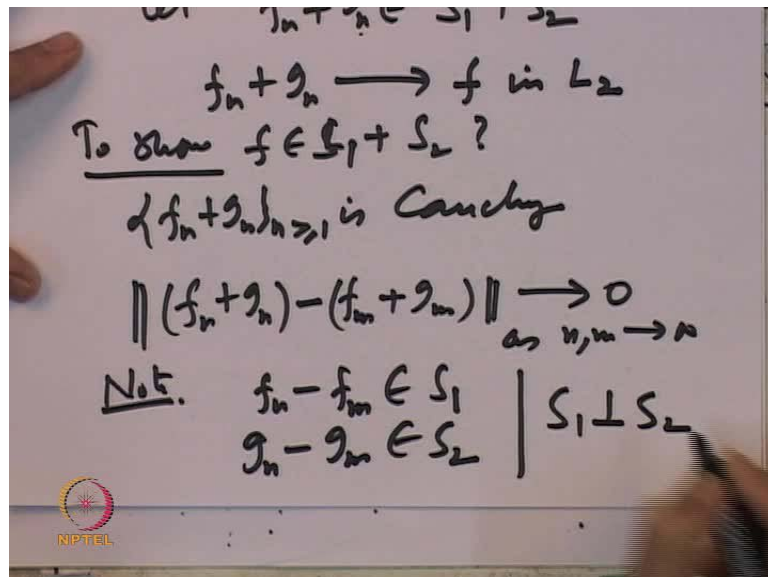 f_n + g_n ∈ S_1 + S_2
f_n + g_n ⟶ f in L_2
To show f ∈ S_1 + S_2 ?
{f_n + g_n}_{n≥1} is Cauchy
‖(f_n + g_n) − (f_m + g_m)‖ ⟶ 0
as n, m ⟶ ∞
Note. f_n − f_m ∈ S_1 | S_1 ⊥ S_2
g_n − g_m ∈ S_2
NPTEL